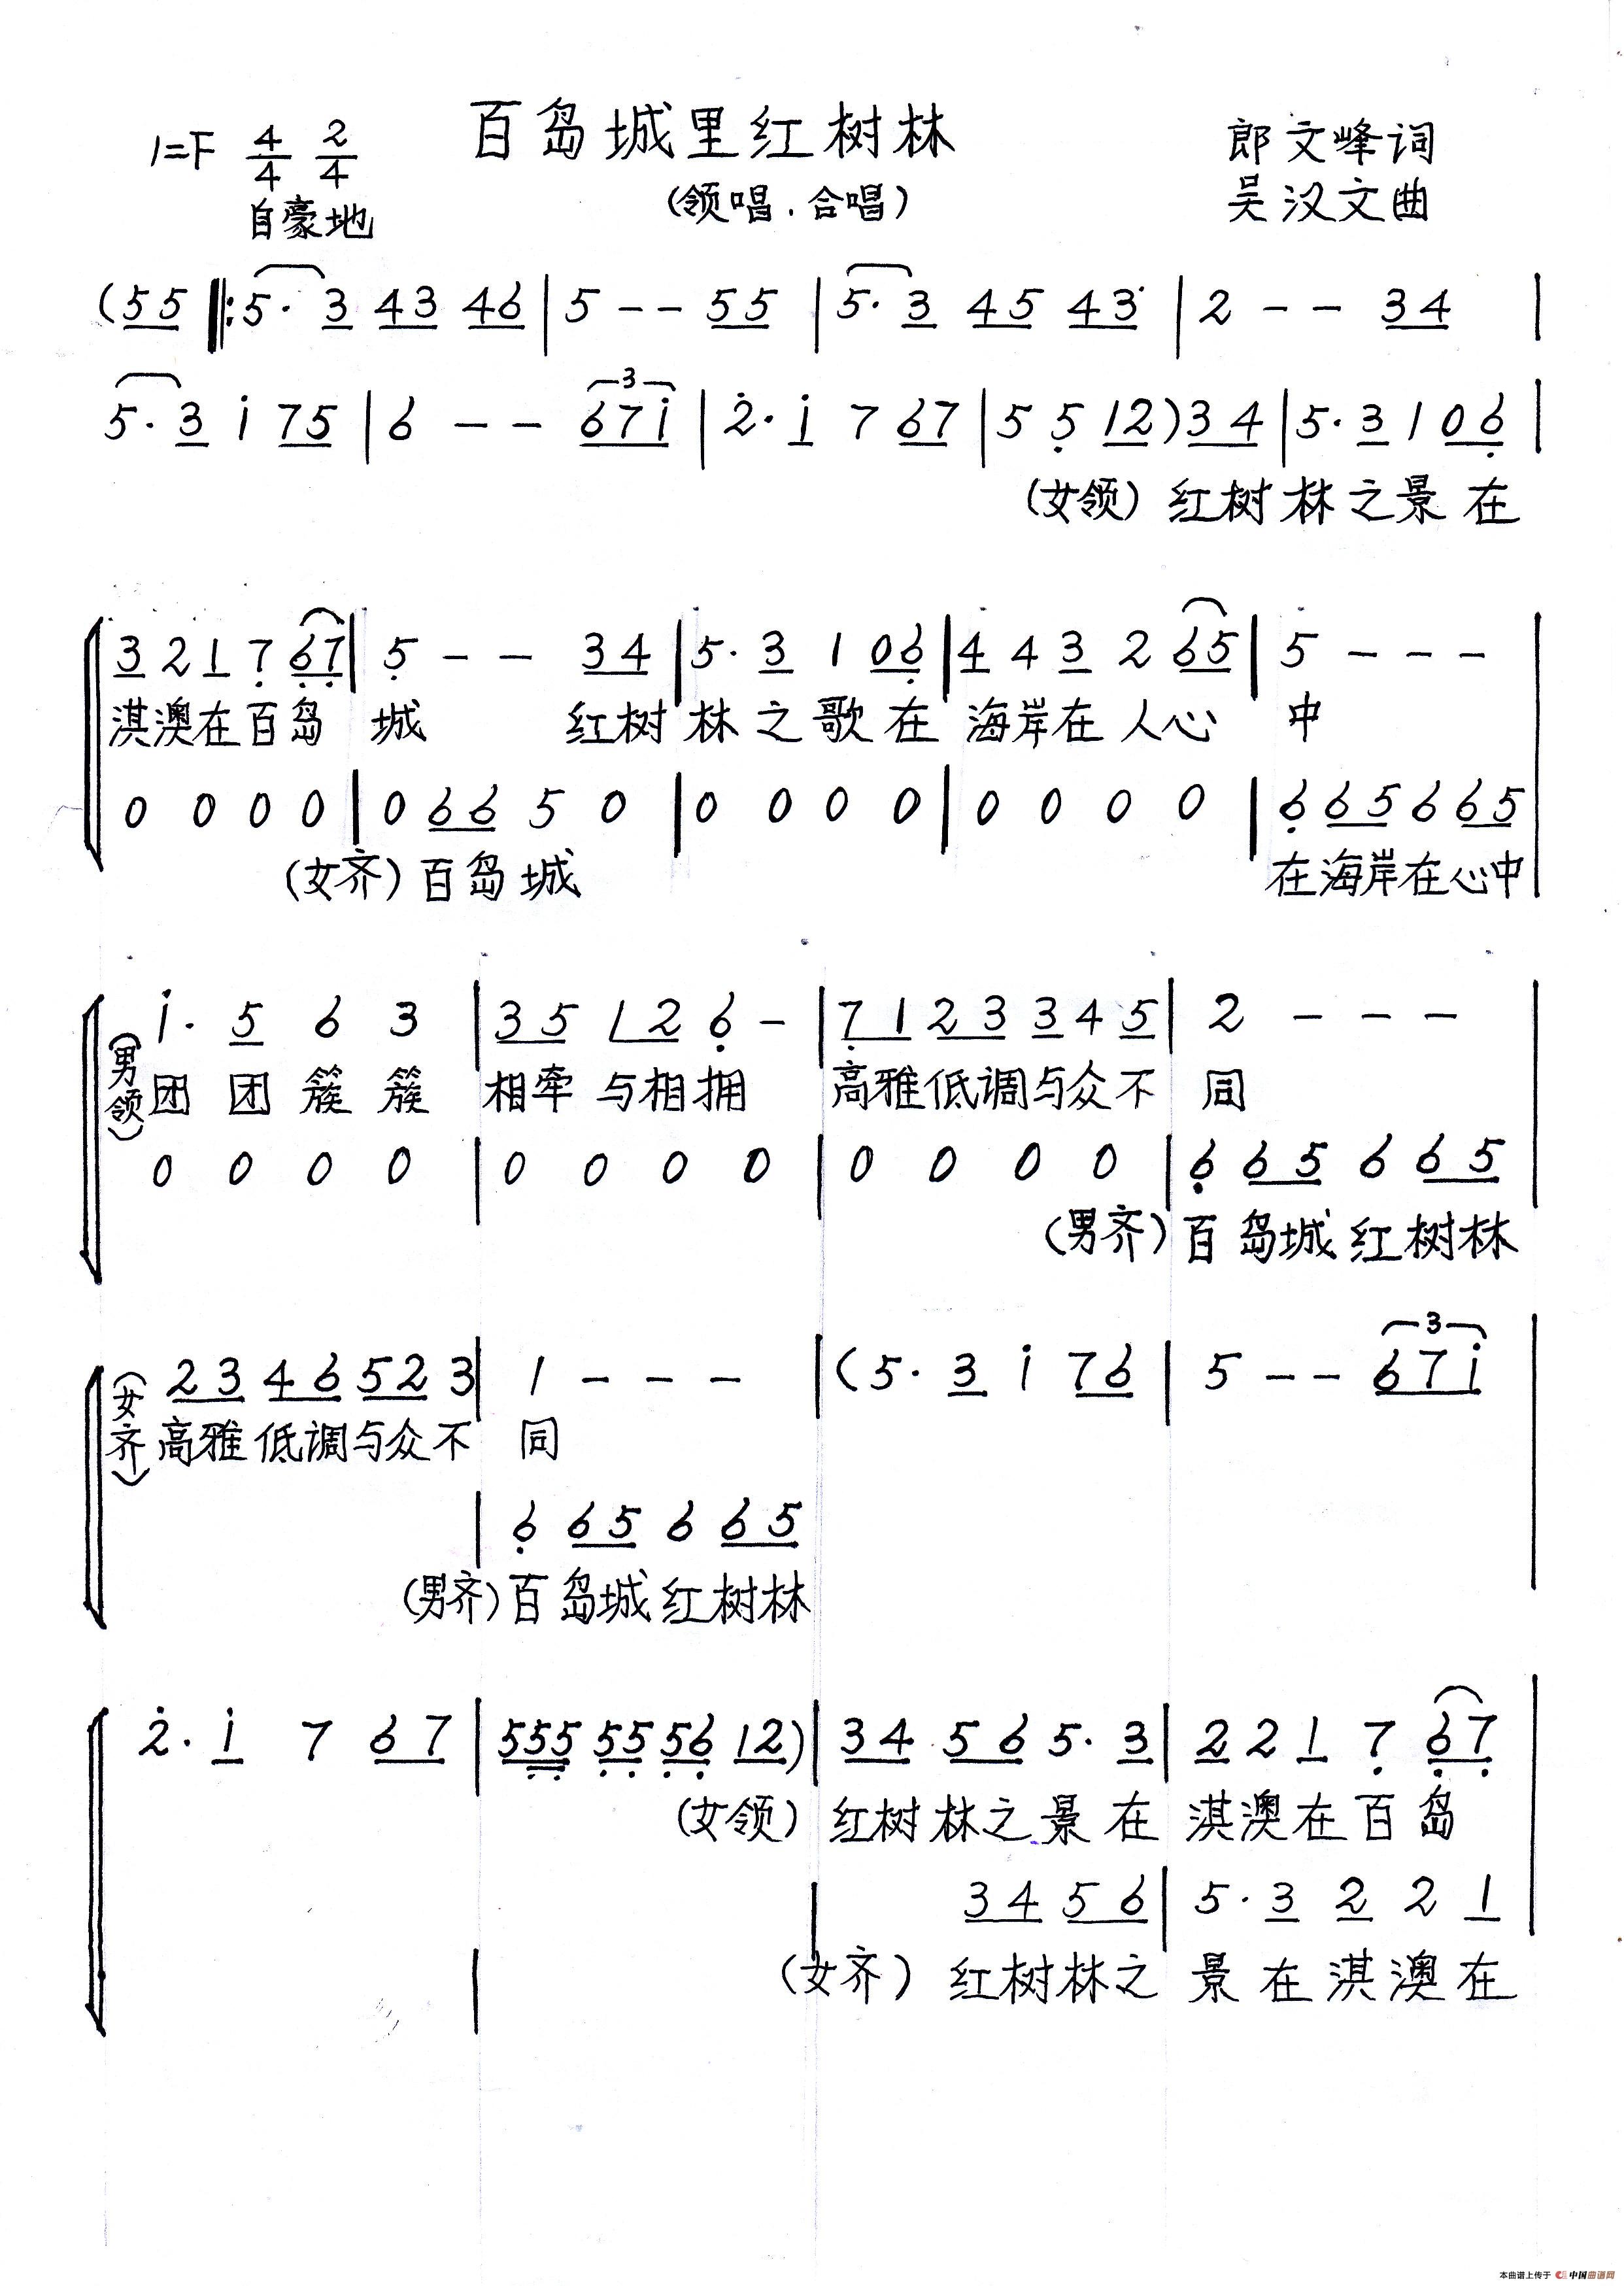 百岛城里红树林
1=F 4/4 2/4
郎文峰词
(领唱.合唱)
吴汉文曲
自豪地
(55 ‖: 5· 3 43 46 | 5 - - 55 | 5· 3 45 43 | 2 - - 34 |
5· 3 i 75 | 6 - - 67i | 2· i 7 67 | 5 5 12) 34 | 5· 3 1 06 |
(女领) 红树林之景在
3 2 1 7 67 | 5 - - 34 | 5· 3 1 06 | 4 4 3 2 65 | 5 - - - |
淇澳在百岛城 红树林之歌在海岸在人心中
0 0 0 0 | 0 66 5 0 | 0 0 0 0 | 0 0 0 0 | 6 65 6 65
(女齐) 百岛城 在海岸在心中
i· 5 6 3 | 35 12 6 - | 71 23 3 4 5 | 2 - - - |
(男领) 团团簇簇相牵与相拥 高雅低调与众不同
0 0 0 0 | 0 0 0 0 | 0 0 0 0 | 6 65 6 65
(男齐) 百岛城红树林
23 46 52 3 | 1 - - - | (5· 3 i 76 | 5 - - 67i |
(女齐) 高雅低调与众不同
| 6 65 6 65
(男齐) 百岛城红树林
2· i 7 67 | 555 55 56 12) | 34 56 5· 3 | 2 2 1 7 67
(女领) 红树林之景在淇澳在百岛
34 56 | 5· 3 2 2 1
(女齐) 红树林之景在淇澳在
本曲谱上传于 中国曲谱网